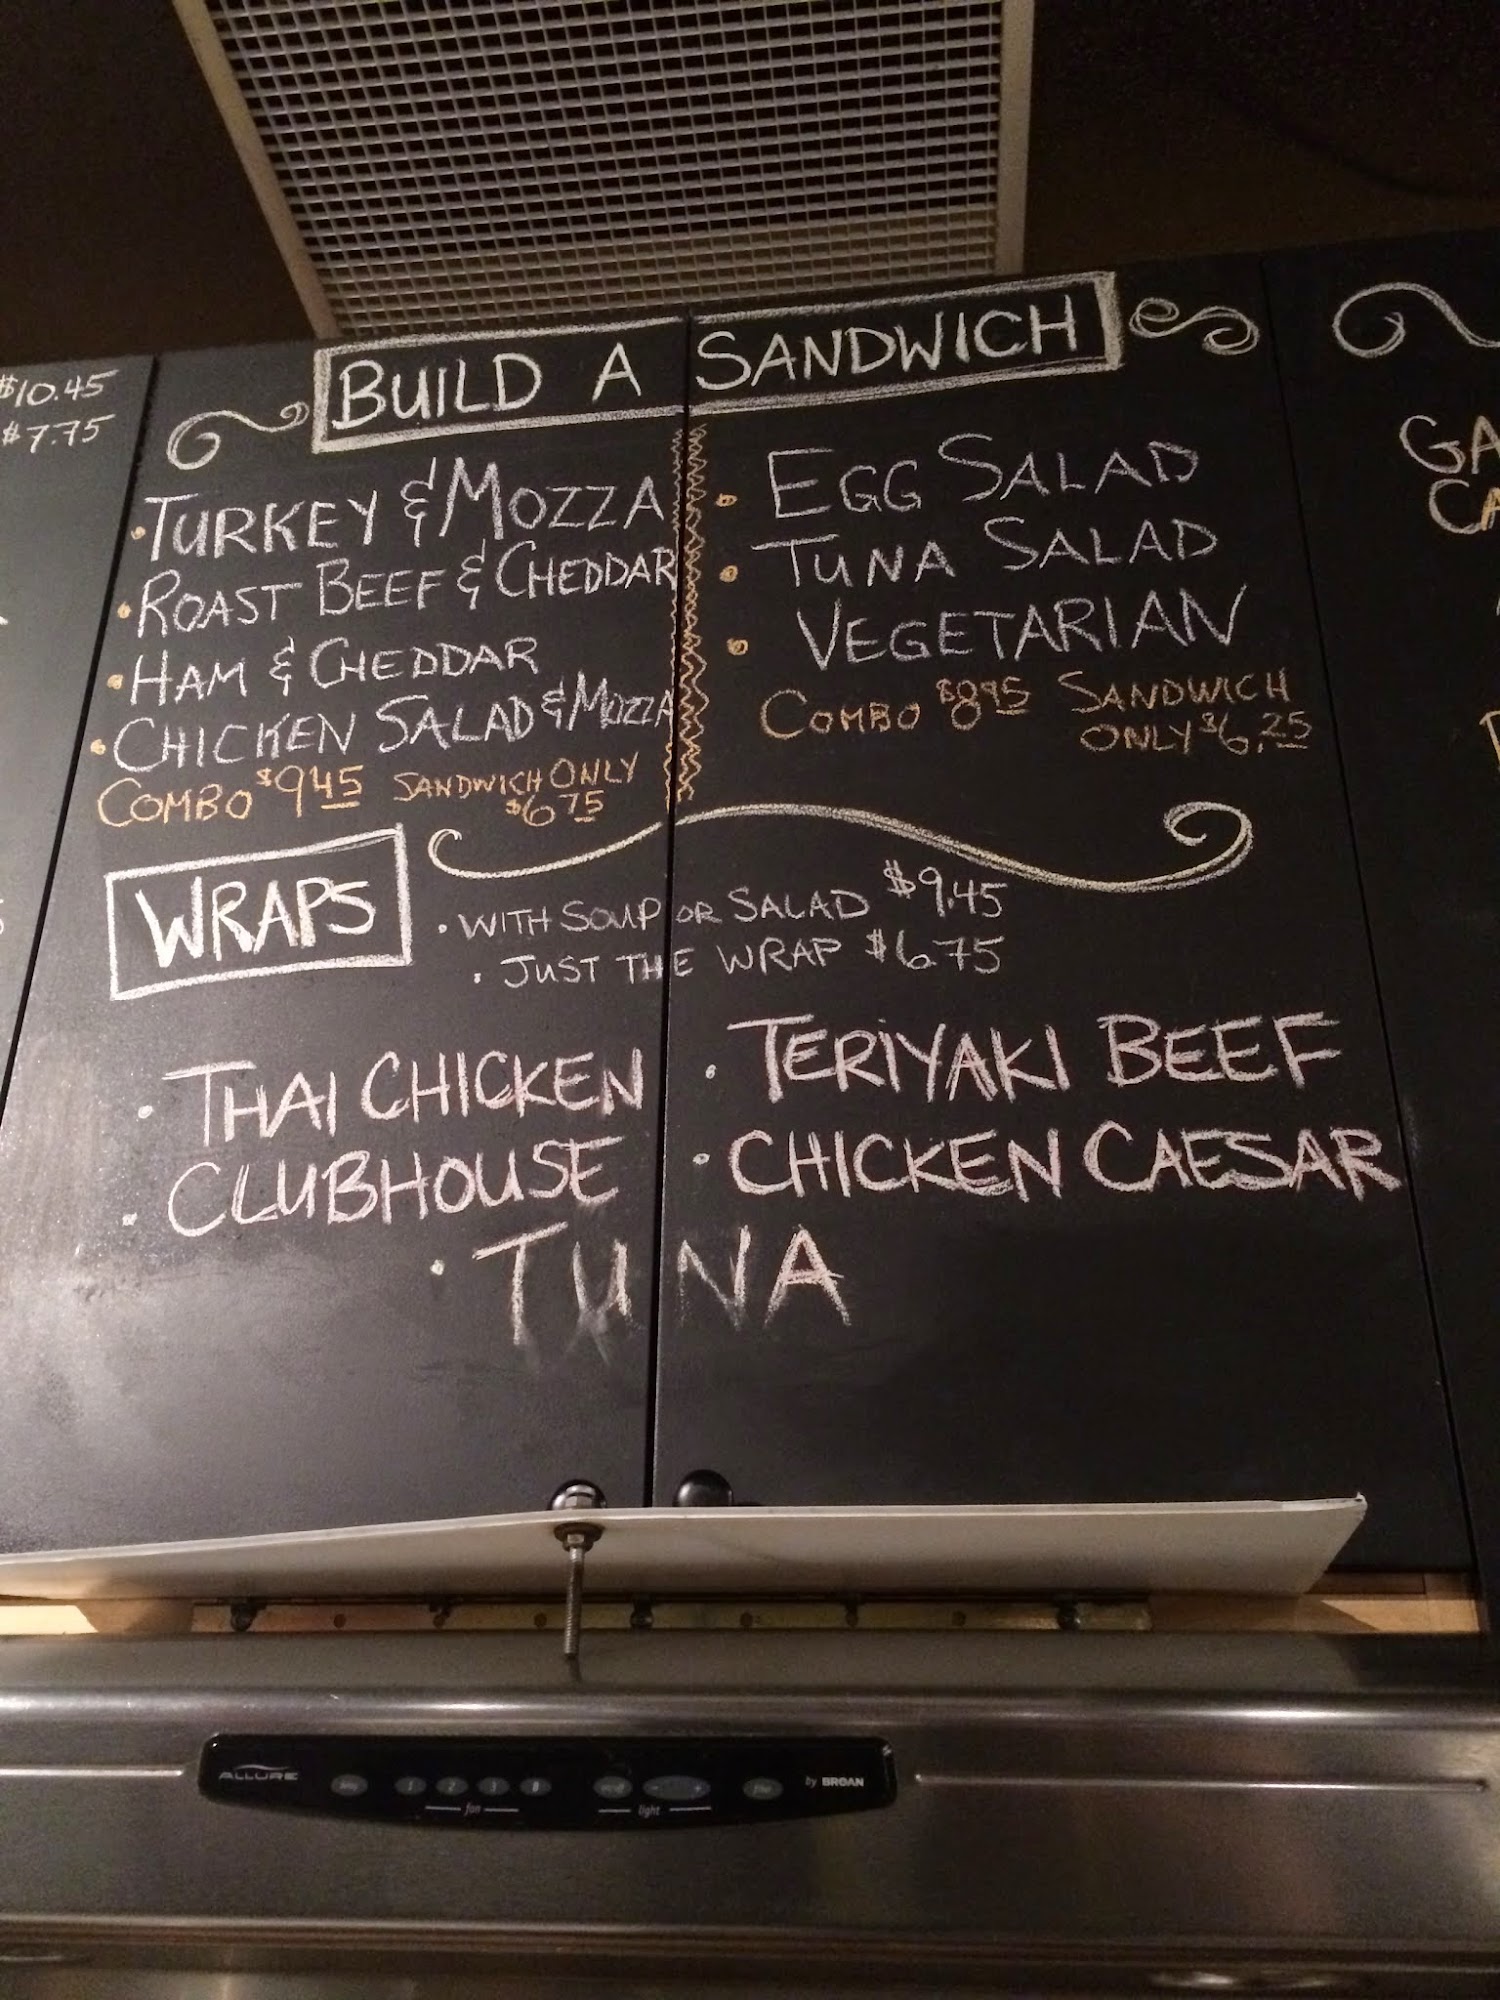 $10.45
$7.75
BUILD A SANDWICH
• TURKEY & MOZZA
• ROAST BEEF & CHEDDAR
• HAM & CHEDDAR
• CHICKEN SALAD & MOZZA
COMBO $9.45 SANDWICH ONLY
$6.75
• EGG SALAD
• TUNA SALAD
• VEGETARIAN
COMBO $8.95 SANDWICH
ONLY $6.25
WRAPS
• WITH SOUP OR SALAD $9.45
• JUST THE WRAP $6.75
• THAI CHICKEN
• CLUBHOUSE
• TERIYAKI BEEF
• CHICKEN CAESAR
• TUNA
GA
CA
ALLURE
1 2 3
fan
light
by BROAN